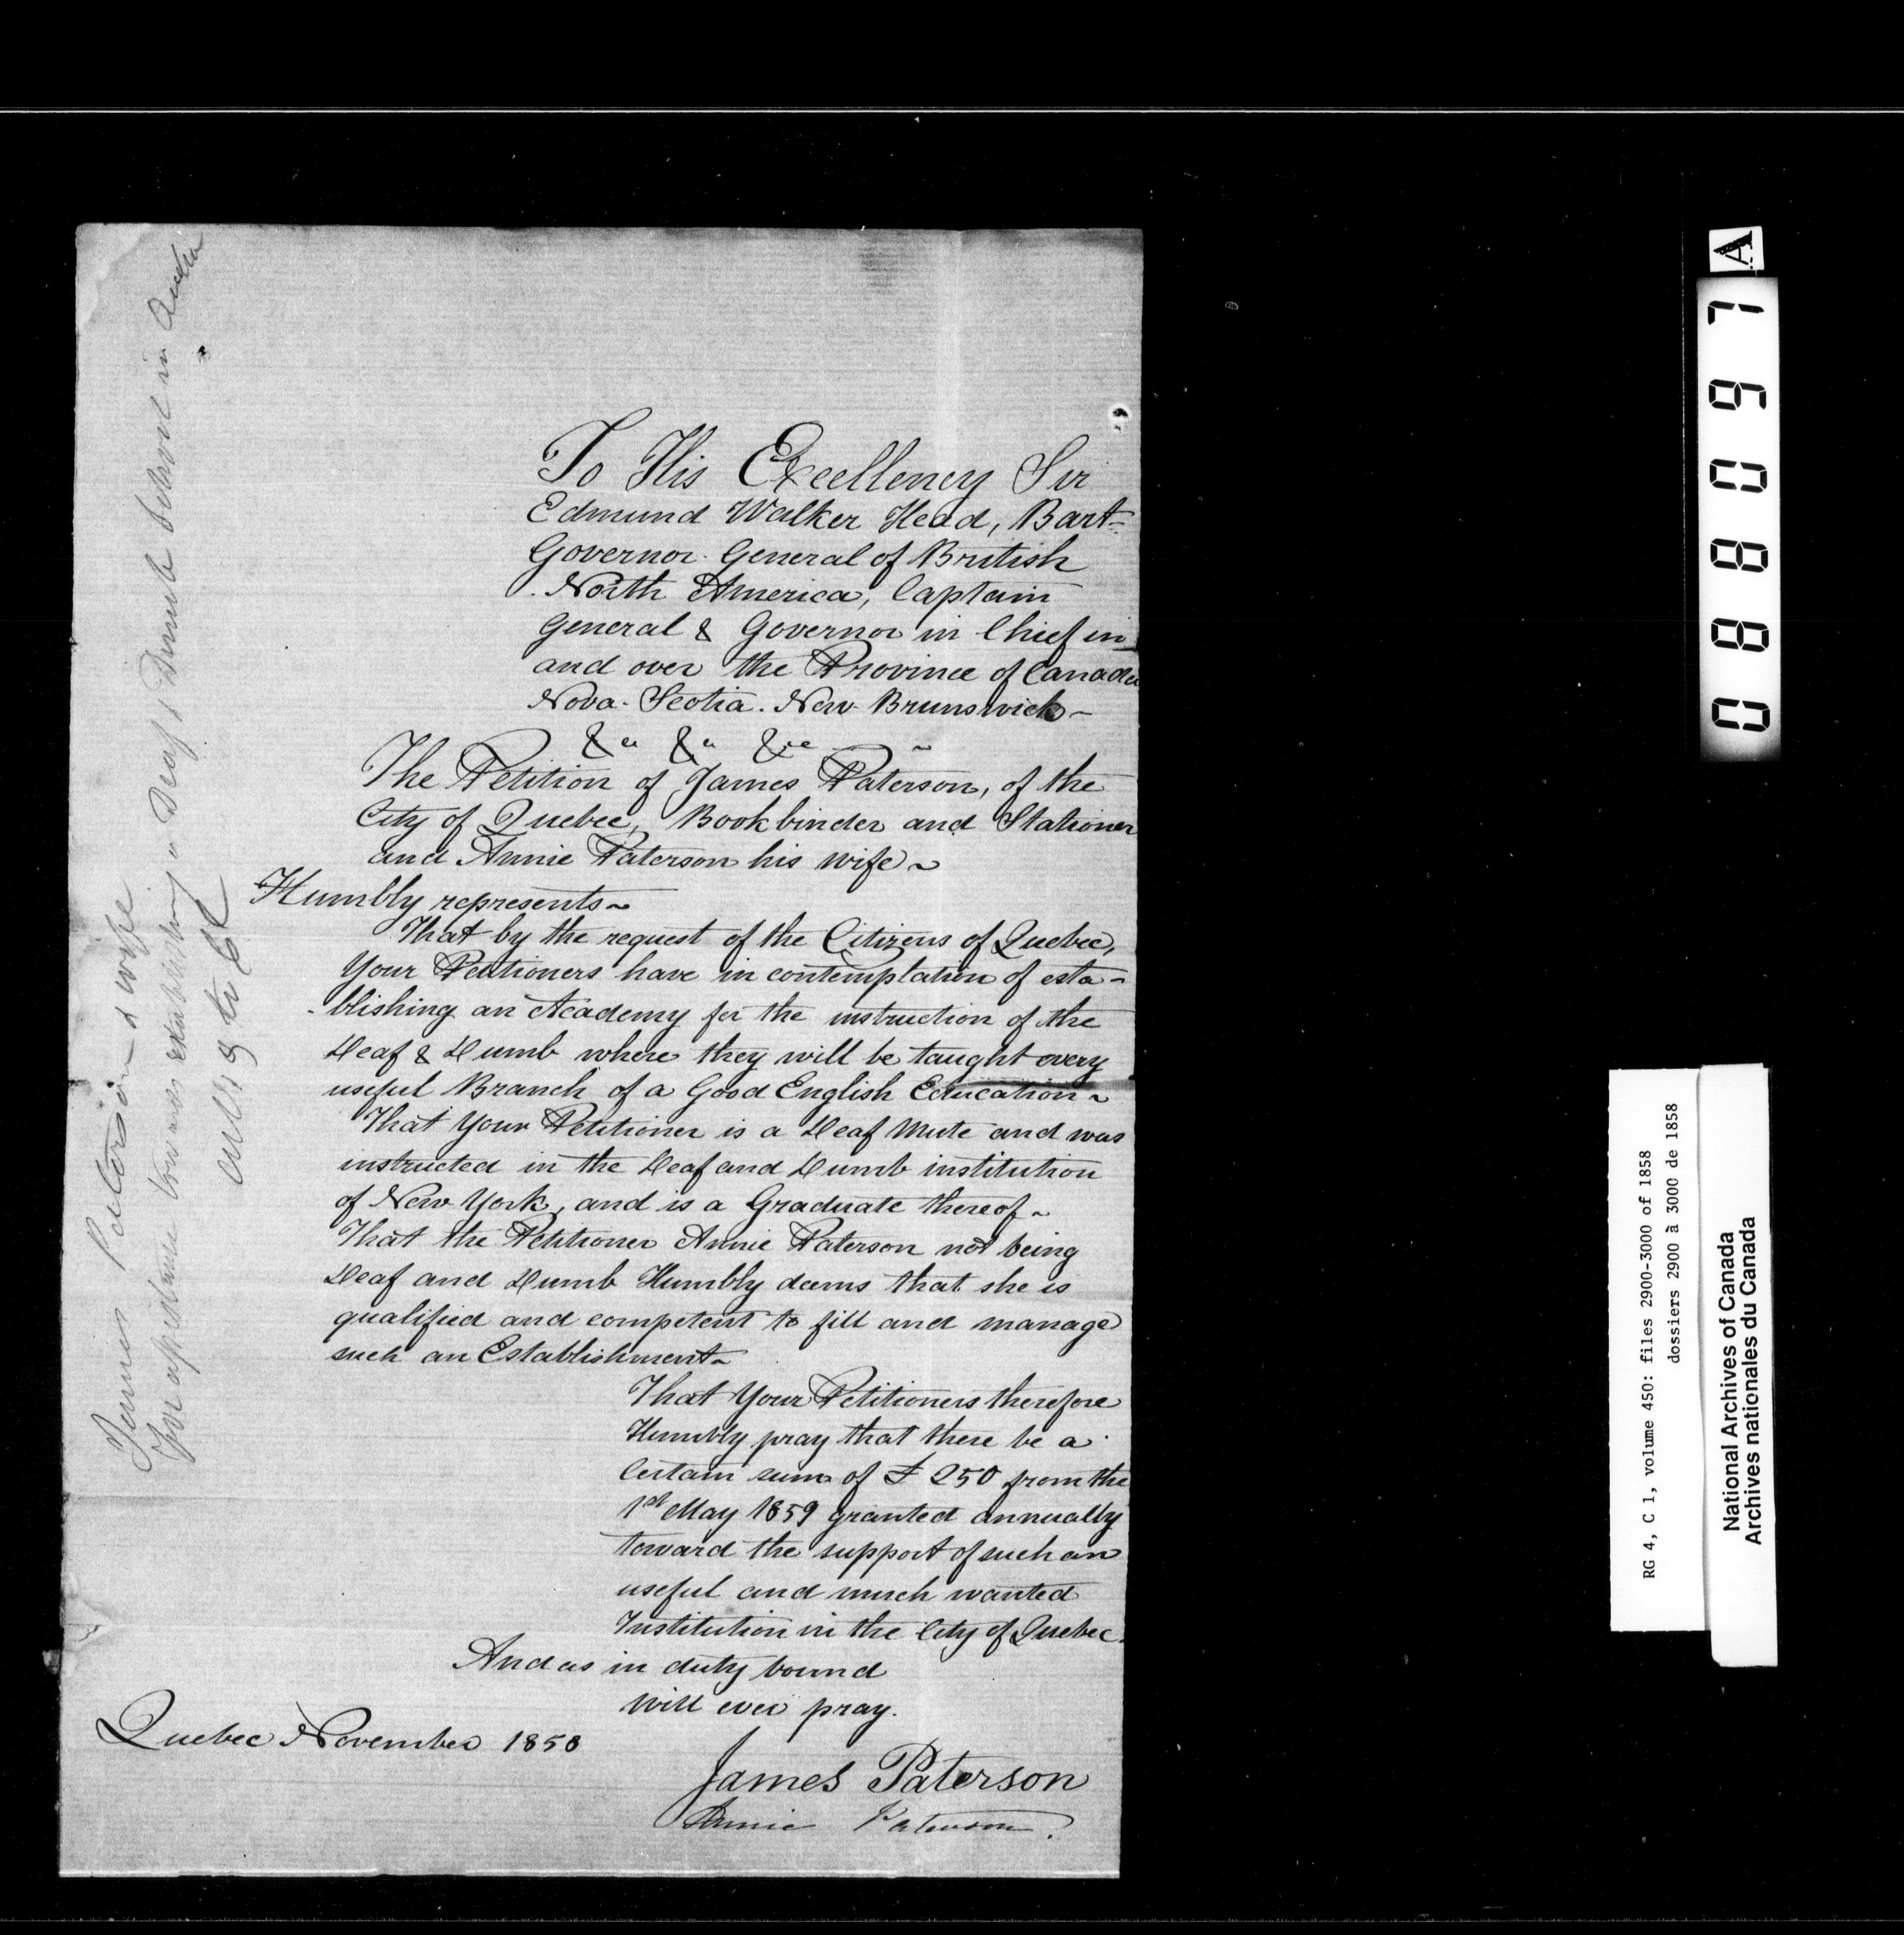 To His Excellency Sir
Edmund Walker Head, Bart.
Governor General of British
North America, Captain
General & Governor in Chief in
and over the Province of Canada
Nova-Scotia. New Brunswick-
&a &a &ca
The Petition of James Paterson, of the
City of Quebec, Bookbinder and Stationer
and Annie Paterson his wife~
Humbly represents~
That by the request of the Citizens of Quebec,
Your Petitioners have in contemplation of esta-
-blishing an Academy for the instruction of the
Deaf & Dumb where they will be taught every
useful Branch of a Good English Education~
That Your Petitioner is a Deaf Mute and was
instructed in the Deaf and Dumb institution
of New York, and is a Graduate thereof~
That the Petitioner Annie Paterson not being
Deaf and Dumb Humbly deems that she is
qualified and competent to fill and manage
such an Establishment~
That Your Petitioners therefore
Humbly pray that there be a
Certain sum of £250 from the
1st May 1859 granted annually
toward the support of such an
useful and much wanted
Institution in the City of Quebec.
And as in duty bound
will ever pray.
Quebec November 1858
James Paterson
Annie Paterson.
James Paterson & wife
For assistance towards establishing a Deaf & Dumb School in Quebec
A
088097
RG 4, C 1, volume 450: files 2900-3000 of 1858
dossiers 2900 à 3000 de 1858
National Archives of Canada
Archives nationales du Canada